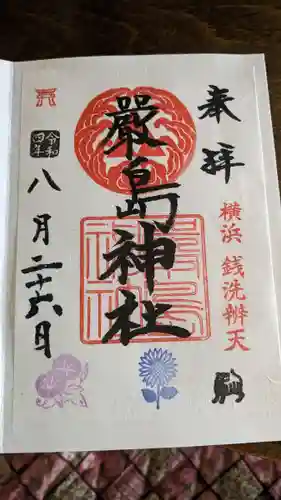 奉拝
横浜 銭洗辨天
嚴島神社
令和
四年
八月二十六日